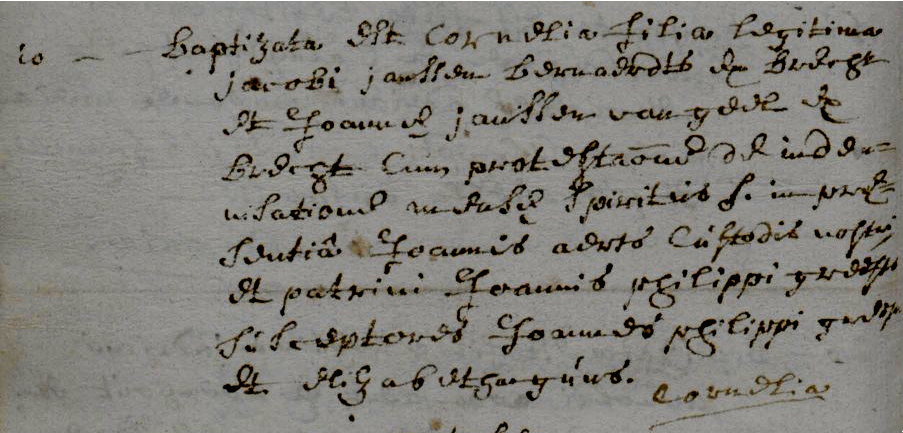 10 - - Baptizata est Cornelia filia legitima
Jacobi janssen bernaerdts ex brecht
et Joannae janssen van geel ex
brecht cum protestaõne de inden=
nisatione mensae Spiritus S. in prae=
sentiâ Joannis aerts Custodis nostri
et patrini Joannis philippi
susceptores Joannes philippi
et elizabetha
Cornelia